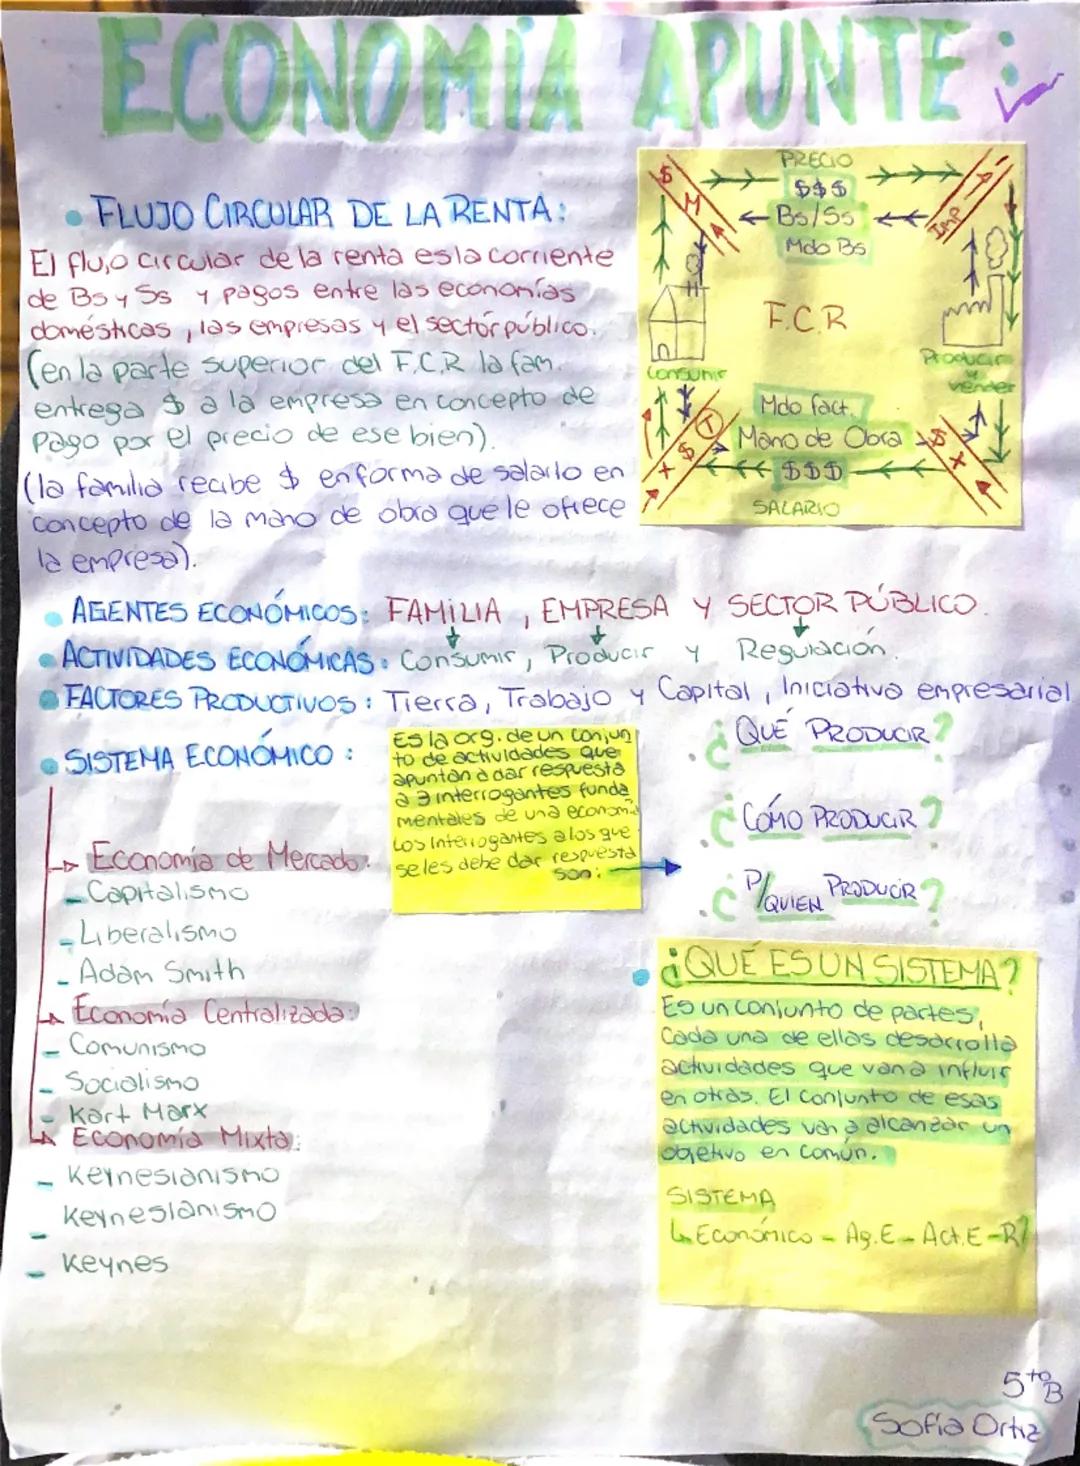 ECONOMÍA APUNTE:
• FLUJO CIRCULAR DE LA RENTA:
El flujo circular de la renta es la corriente
de Bs y Ss y pagos entre las economías
domésticas, las empresas y el sector público.
(en la parte superior del F.C.R la fam.
entrega $ a la empresa en concepto de
Pago por el precio de ese bien).
(la familia recibe $ en forma de salario en
concepto de la mano de obra que le ofrece
la empresa).
PRECIO
$ $$$
M ← Bs/Ss IMP
Mdo Bs
F.C.R
Consumir
Producir
y
vender
Mdo fact.
T Mano de Obra $
X $ $$$ X
SALARIO
• AGENTES ECONÓMICOS: FAMILIA, EMPRESA Y SECTOR PÚBLICO.
• ACTIVIDADES ECONÓMICAS: Consumir, Producir y Regulación.
• FACTORES PRODUCTIVOS: Tierra, Trabajo y Capital, Iniciativa empresarial
• SISTEMA ECONÓMICO:
Es la org. de un conjun
to de actividades que
apuntan a dar respuesta
a 3 interrogantes funda
mentales de una economía
Los Interrogantes a los que
se les debe dar respuesta
son:
¿QUÉ PRODUCIR?
¿CÓMO PRODUCIR?
¿P/QUIEN PRODUCIR?
Economía de Mercado:
- Capitalismo
- Liberalismo
- Adam Smith
Economía Centralizada:
- Comunismo
- Socialismo
- Kart Marx
Economía Mixta:
- Keynesianismo
- Keynesianismo
- Keynes
• ¿QUÉ ES UN SISTEMA?
Es un conjunto de partes,
Cada una de ellas desarrolla
actividades que van a influir
en otras. El conjunto de esas
actividades van a alcanzar un
objetivo en común.
SISTEMA
↳ Económico - Ag.E - Act.E - R
5to B
Sofía Ortiz